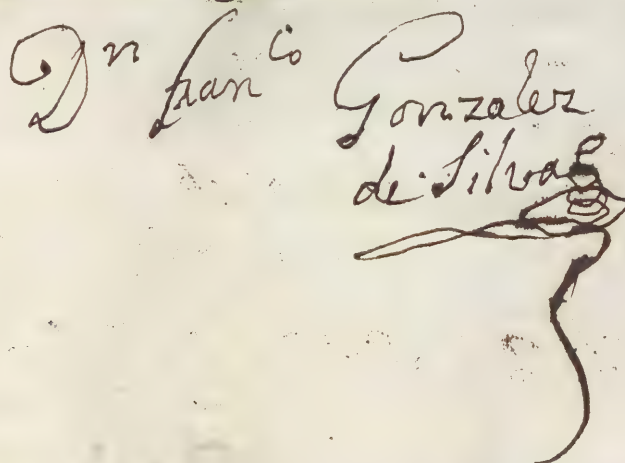 Dn Franco Gonzalez
de Silva